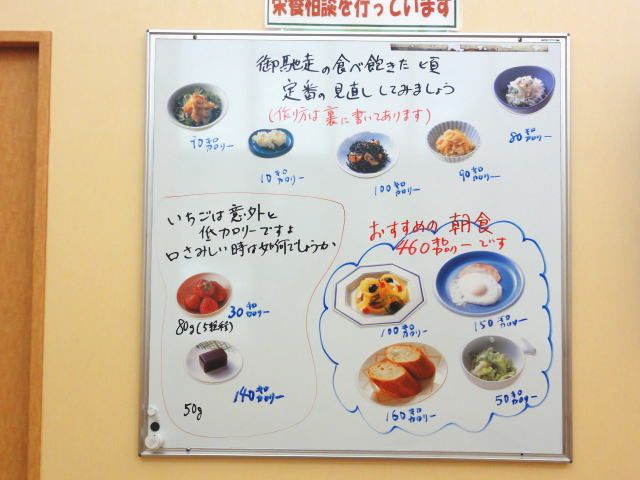 栄養相談を行っています
御馳走の食べ飽きた頃
定番の見直ししてみましょう
(作り方は裏に書いてあります)
70キロカロリー
10キロカロリー
100キロカロリー
90キロカロリー
80キロカロリー
いちごは意外と
低カロリーですよ
口さみしい時は如何でしょうか
30キロカロリー
80g(5粒程)
140キロカロリー
50g
おすすめの朝食
460キロカロリーです
100キロカロリー
150キロカロリー
160キロカロリー
50キロカロリー